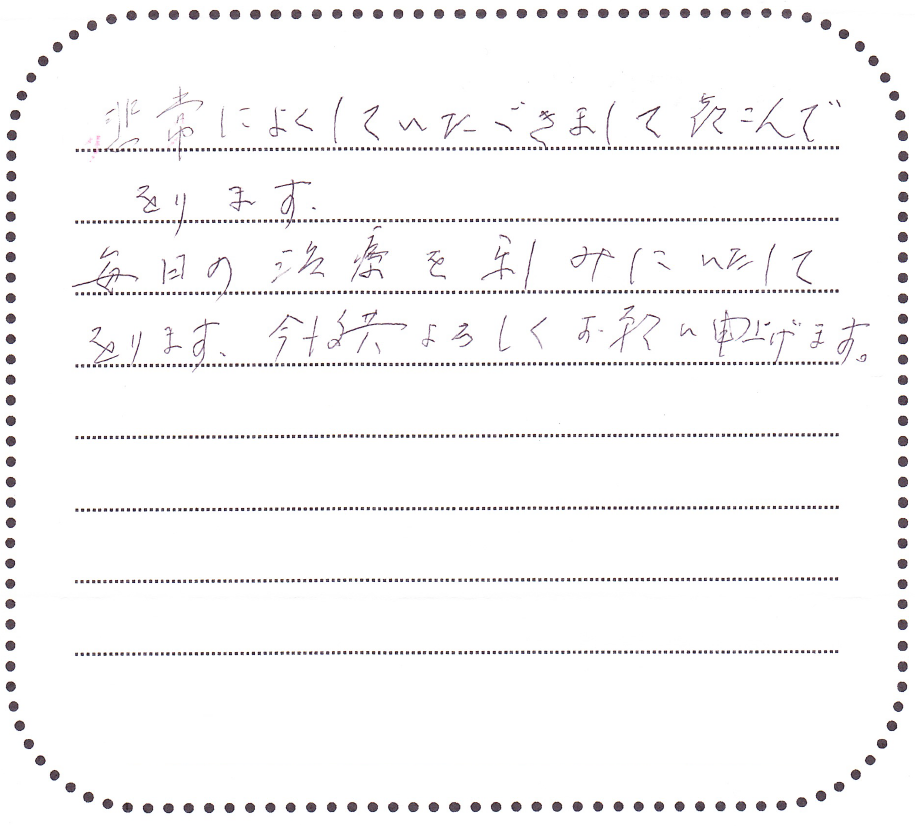 非常によくしていただきまして喜こんで
をります.
毎日の治療を楽しみにいたして
をります、今後共よろしくお願い申上げます。